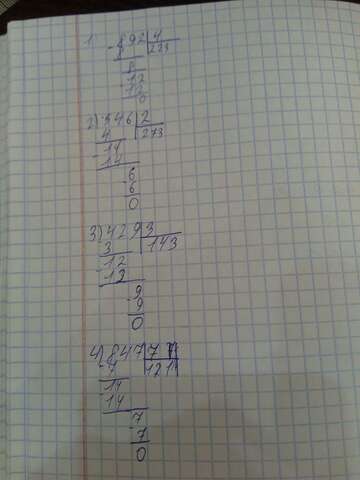 1 892 4
- 8 223
8
12
- 12
0
2) 546 2
4 273
- 14
14
6
- 6
0
3) 429 3
3 143
- 12
12
9
- 9
0
4) 847 7
- 7 121
14
- 14
7
- 7
0